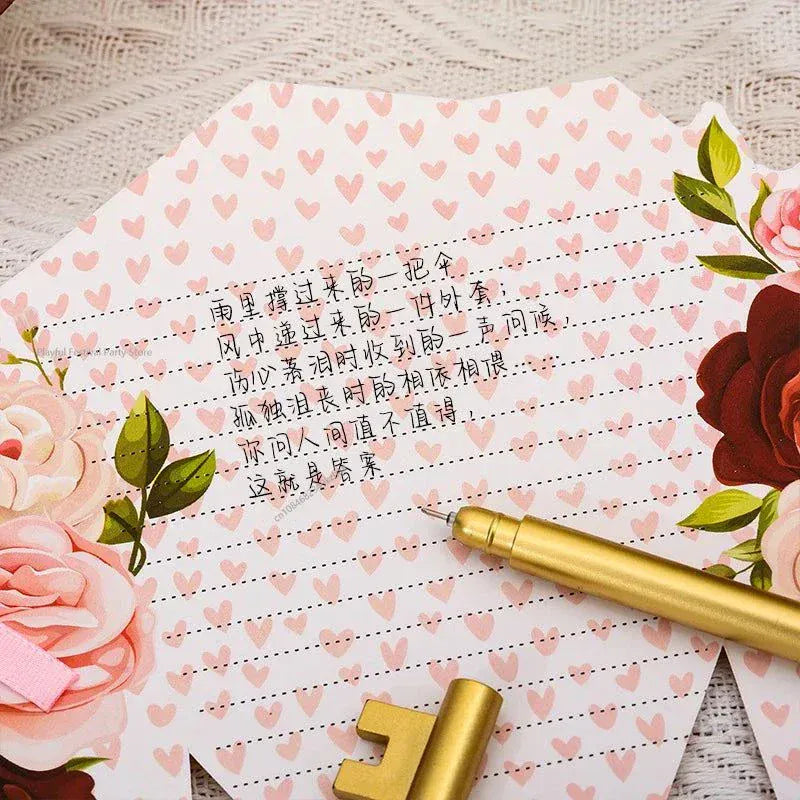 雨里撑过来的一把伞
风中递过来的一件外套，
伤心落泪时收到的一声问候，
孤独沮丧时的相依相偎……
你问人间值不值得，
这就是答案
Playful Festival Party Store